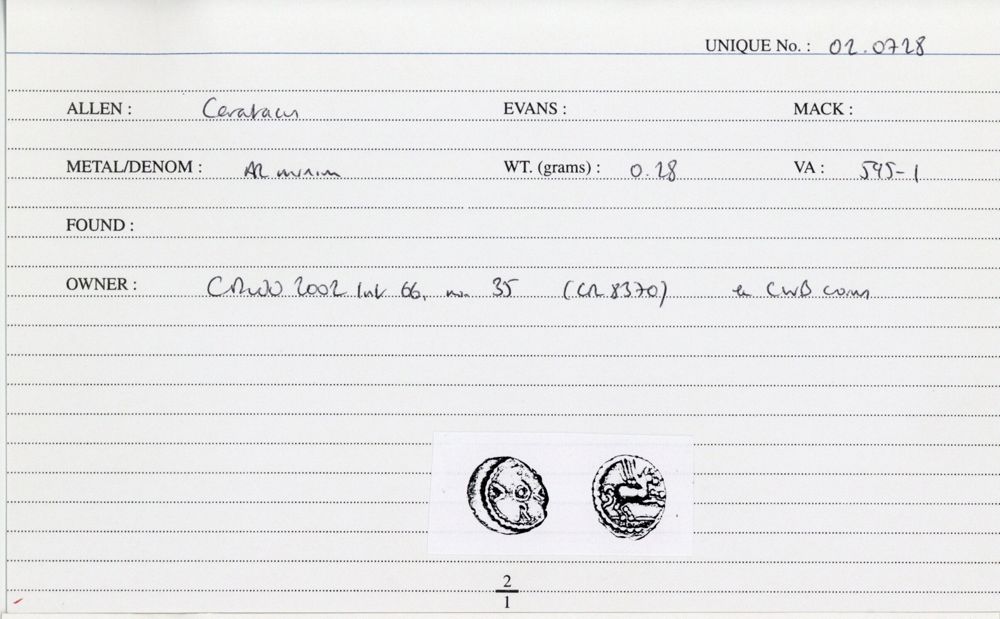 UNIQUE No. : 02.0728
ALLEN : Caratacus EVANS : MACK :
METAL/DENOM : AR minim WT. (grams) : 0.28 VA : 545-1
FOUND :
OWNER : 2002 66, no. 35 (CR 8370) ex CWB coins
2
1